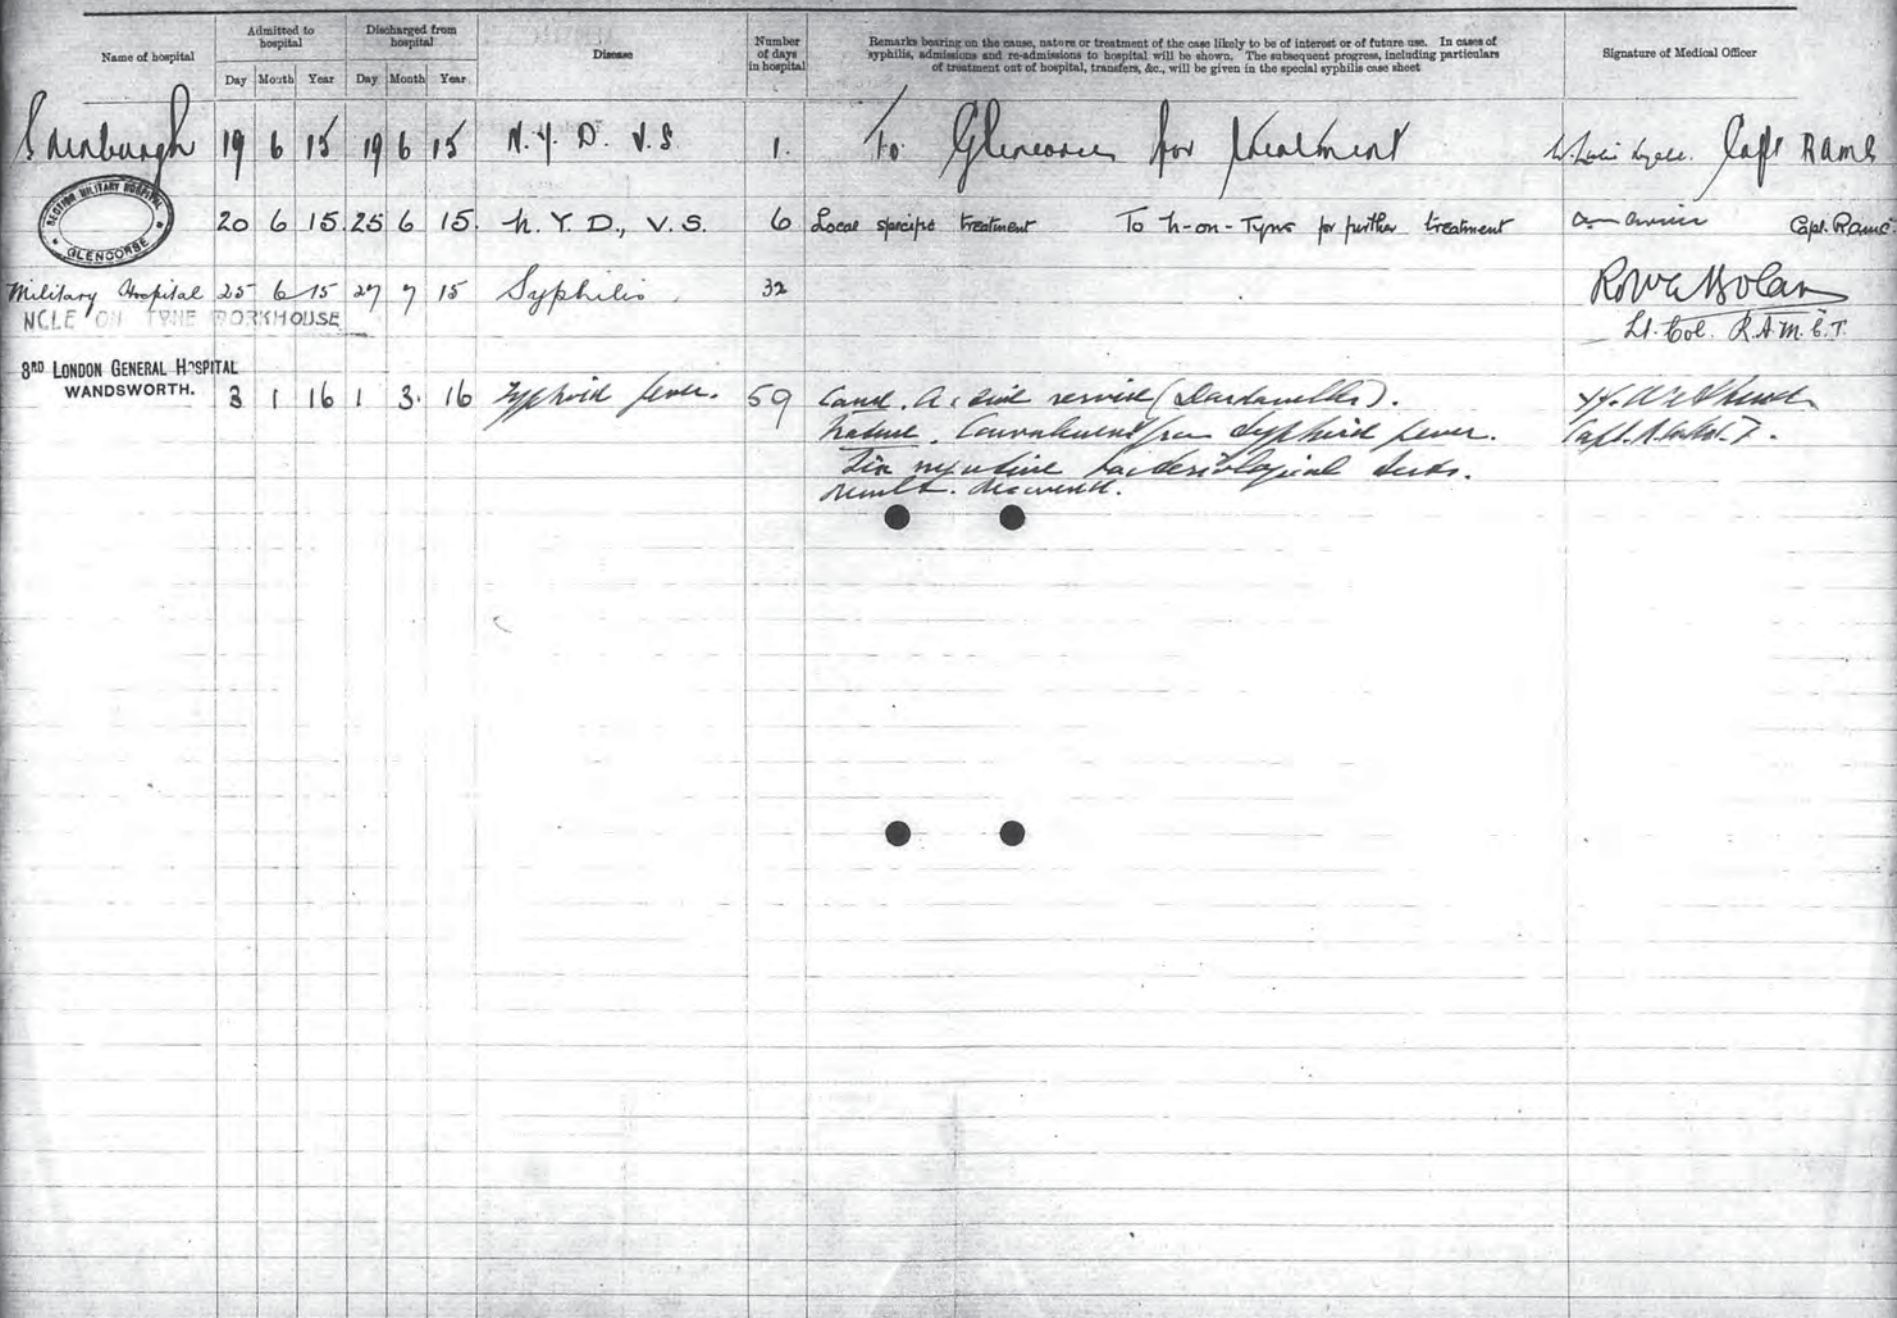 Name of hospital
Admitted to hospital
Discharged from hospital
Disease
Number of days in hospital
Remarks bearing on the cause, nature or treatment of the case likely to be of interest or of future use. In cases of
syphilis, admissions and re-admissions to hospital will be shown. The subsequent progress, including particulars
of treatment out of hospital, transfers, &c., will be given in the special syphilis case sheet
Signature of Medical Officer
Day Month Year Day Month Year
Edinburgh 19 6 15 19 6 15 N.Y.D. V.S. 1. To Glencorse for treatment Capt RAMC
SECTION MILITARY HOSPITAL
GLENCORSE
20 6 15. 25 6 15. N.Y.D., V.S. 6 Local specific treatment To N-on-Tyne for further treatment Capt. RAMC.
Military Hospital 25 6 15 27 7 15 Syphilis 32
NCLE ON TYNE WORKHOUSE
Lt. Col. R.A.M.C.T.
3RD LONDON GENERAL HOSPITAL
WANDSWORTH.
3 1 16 1 3. 16 Typhoid fever. 59 Cause. Active service (Dardanelles).
Nature. Convalescent from Typhoid fever.
Six negative bacteriological tests.
Result.